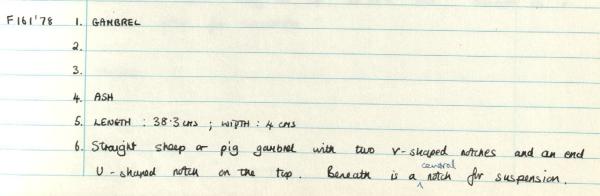 F161'78 1. GAMBREL
2.
3.
4. ASH
5. LENGTH : 38.3 CMS ; WIDTH : 4 CMS
6. Straight sheep or pig gambrel with two V-shaped notches and an end
U-shaped notch on the top. Beneath is a central notch for suspension.